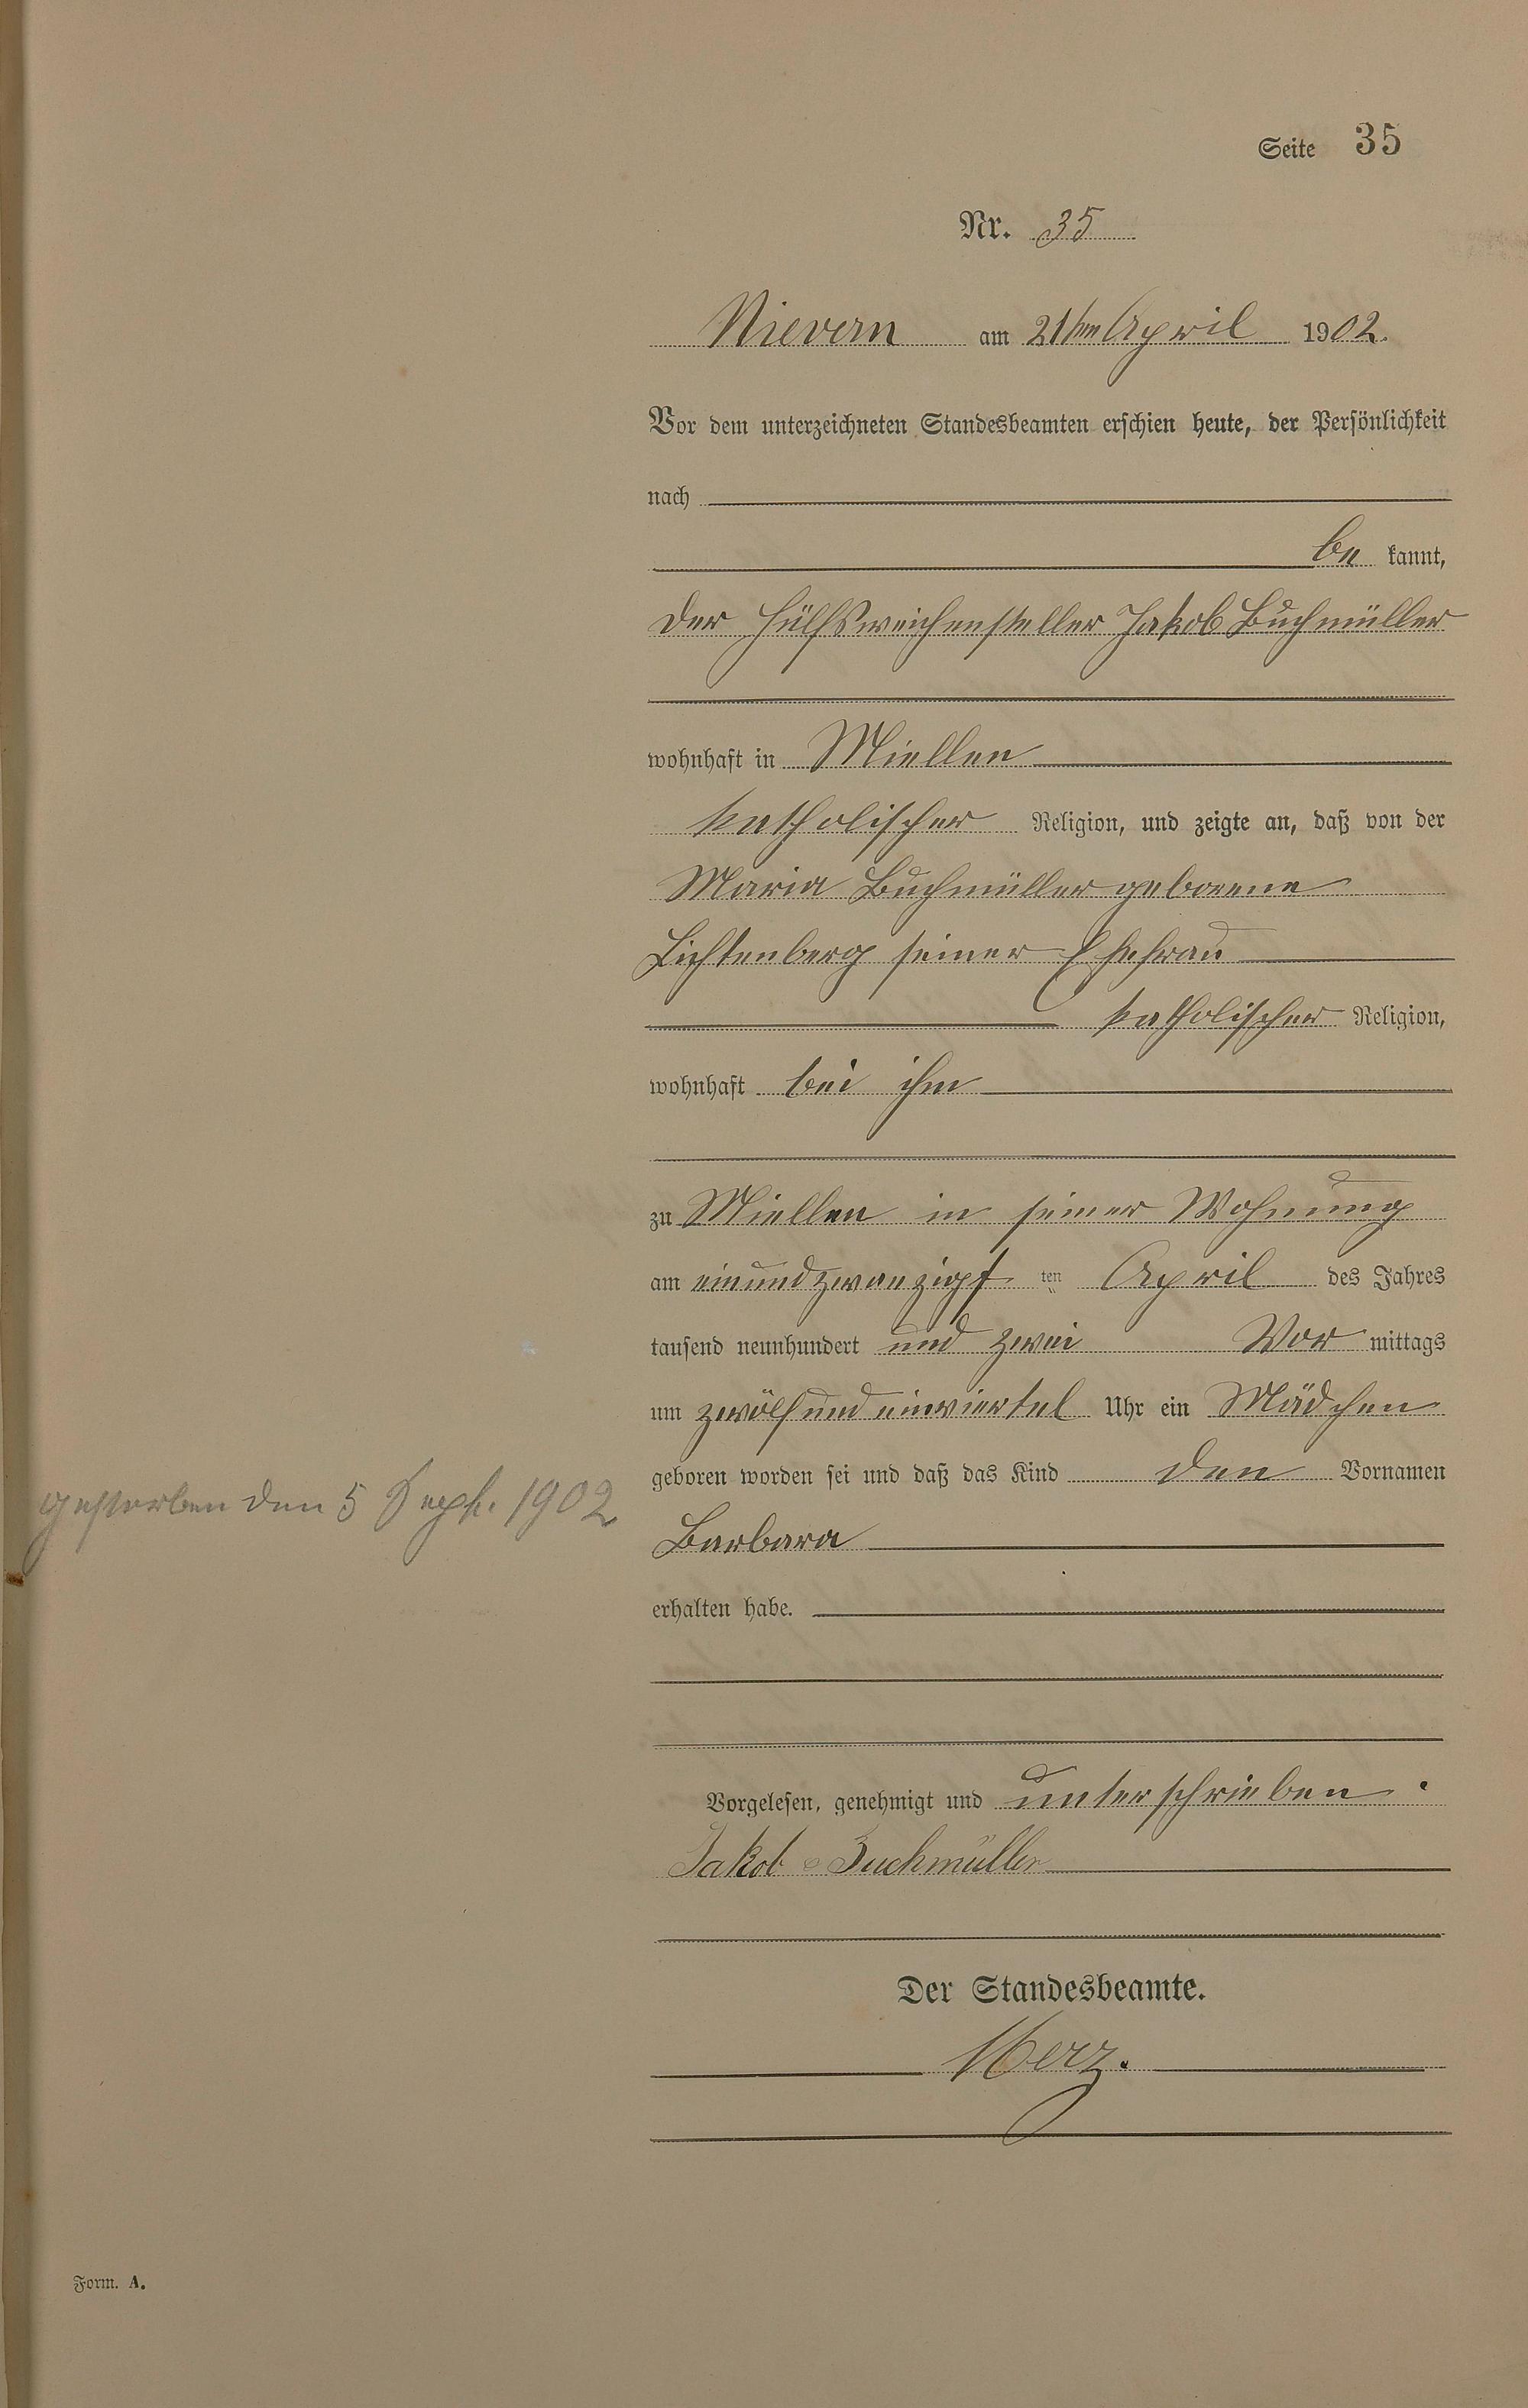 Seite 35
Nr. 35
Nievern am 21ten April 1902.
Vor dem unterzeichneten Standesbeamten erschien heute, der Persönlichkeit
nach
be kannt,
der Hülfsweichensteller Jakob Buchmüller
wohnhaft in Miellen
katholischer Religion, und zeigte an, daß von der
Maria Buchmüller geborene
Lichtenberg seiner Ehefrau
katholischer Religion,
wohnhaft bei ihm
zu Miellen in seiner Wohnung
am einundzwanzigst ten April des Jahres
tausend neunhundert und zwei Vor mittags
um zwölf und einviertel Uhr ein Mädchen
geboren worden sei und daß das Kind den Vornamen
gestorben den 5 Sept. 1902
Barbara
erhalten habe.
Vorgelesen, genehmigt und unterschrieben.
Jakob Buchmüller
Der Standesbeamte.
Merz.
Form. A.